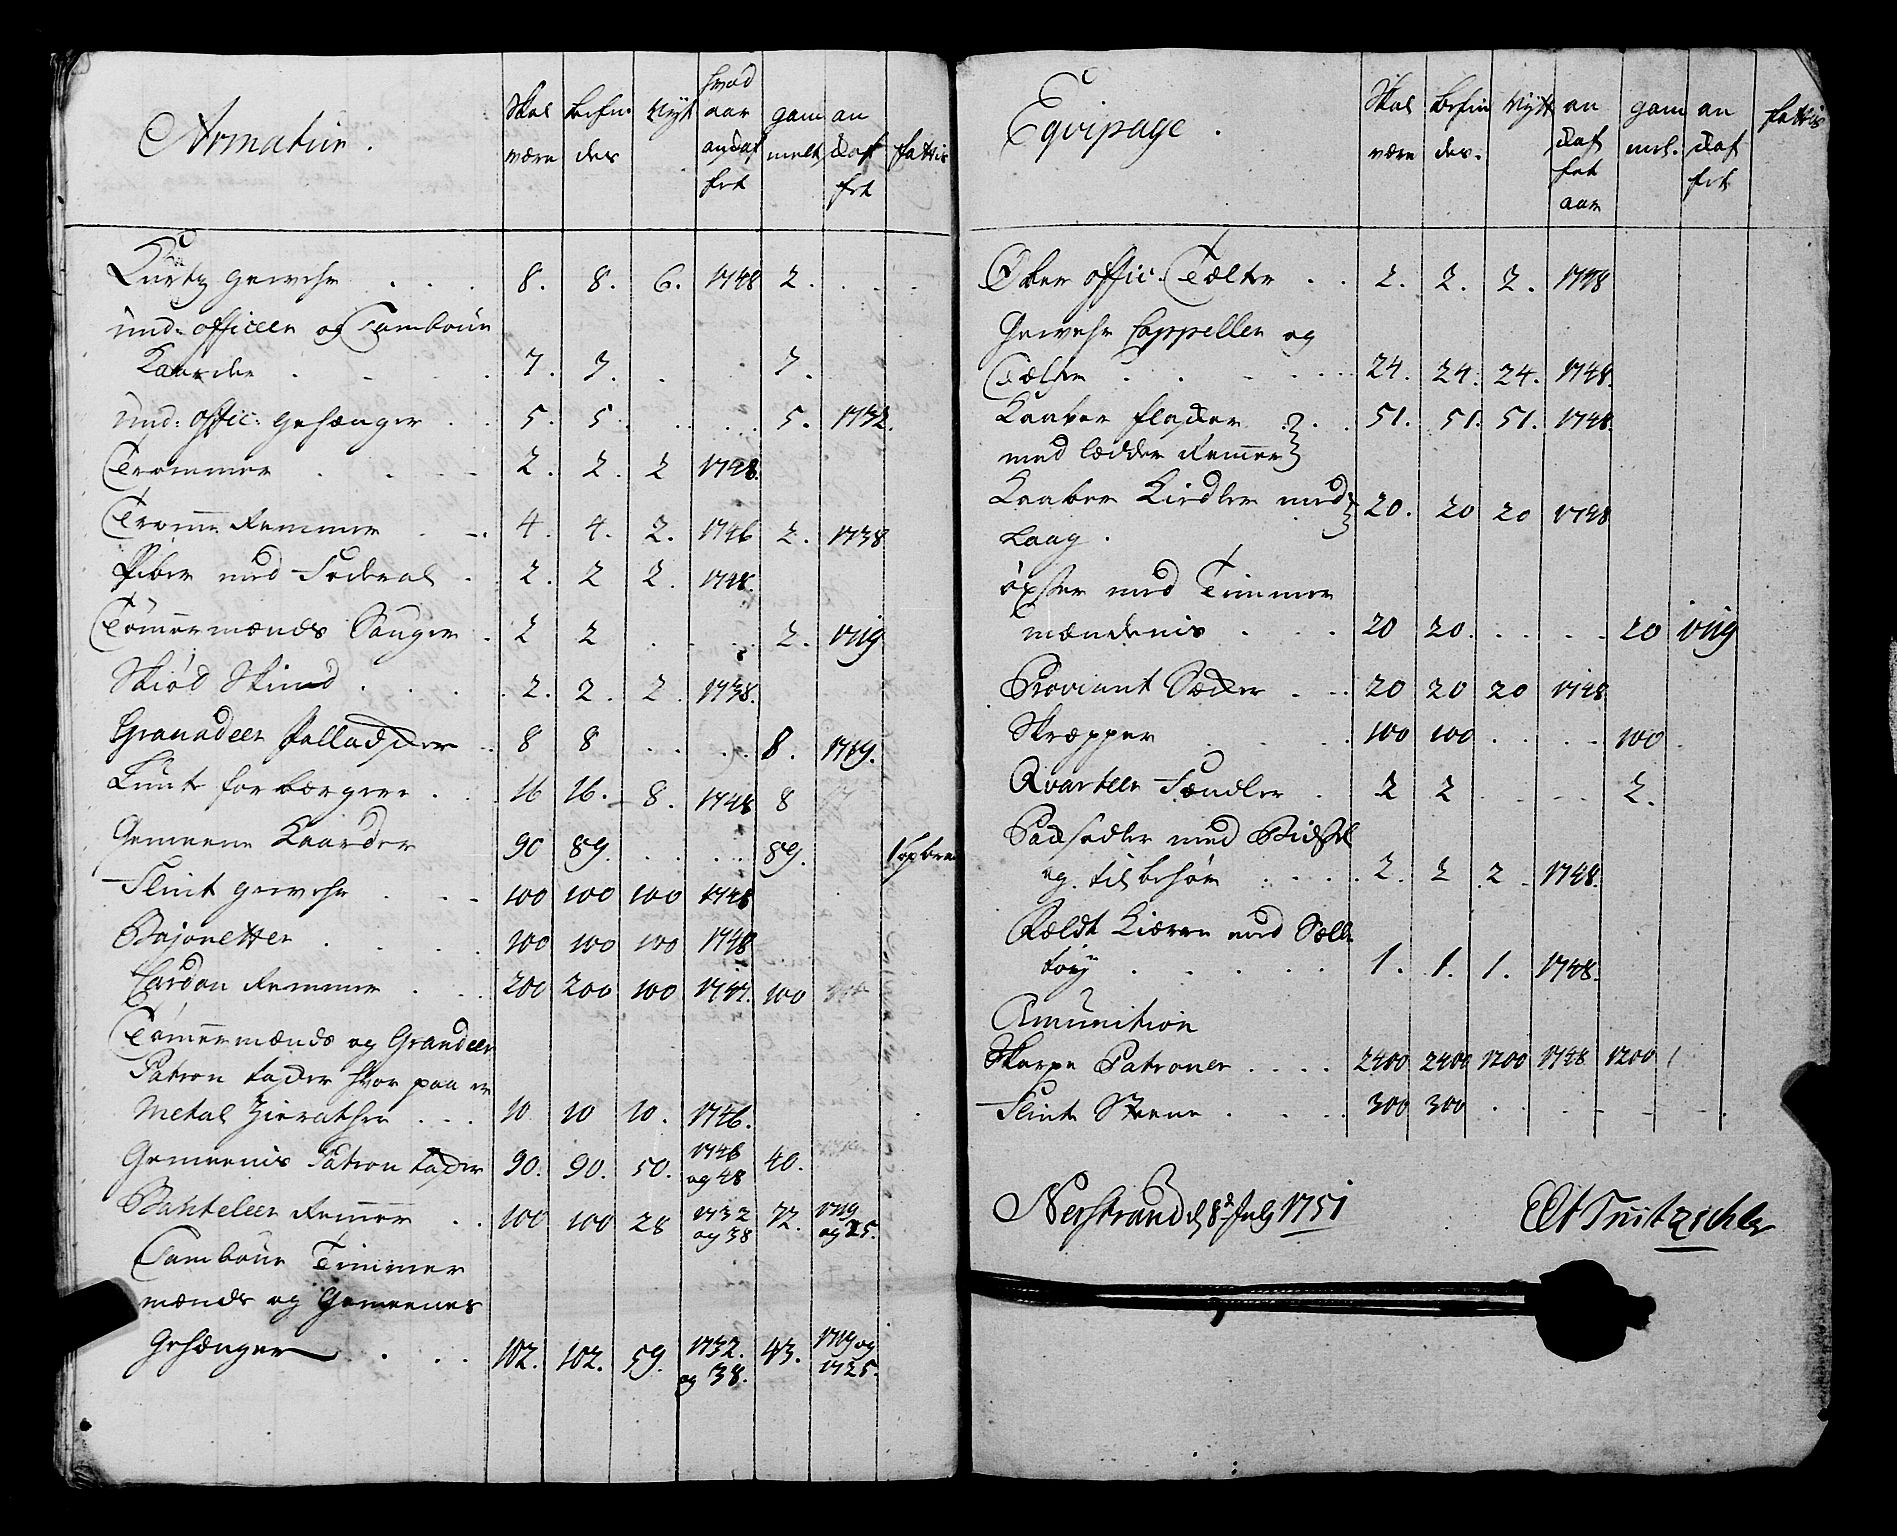 Armatur. Skal være Befindes Nyt hvad aar andskaffet gammelt an skaffet fattis
Kurtz gewehr . . . 8. 8. 6. 1748 2. . . .
Und: officeer og Tambour
Kaarder . . . 7. 7. . . 7.
Und: offic: gehænger . . 5. 5. . . . 5. 1732.
Trommer . . . 2. 2. 2 1748.
Tromme Remmer . . 4. 4. 2. 1746 2. 1738
Piber med Foderal . 2. 2 2. 1748.
Tømmermænds Sauger . 2 2 . . . 2. 1719
Skiød Skind . . . . 2. 2. 2. 1738.
Granadeer Palladsker . 8 8 . . . 8. 1719.
Lunte forbærgere . . 16 16. 8. 1748 8
Gemeene Kaarder 90 89. . . . 89. 1 opbren
Flint gewehr . . . 100 100 100 1748
Bajonetter . . . 100 100 100 1748
Cardon Remmer . . 200 200 100 1747. 100
Tømmermænds og Grandeer
Patron tasker hvor paa er
Metal Zierather . . . 10 10 10. 1746.
Gemeenis Patron tasker 90. 90. 50. 1746 og 48 40.
Banteleer Remmer . . 100 100 28 1732 og 38 72. 1719 og 25.
Tambour Timmer
mænds og Gemeenes
Gehænger . . . 102. 102. 59. 1732. og 38. 43. 1719 og 1725.
Eqvipage. Skal være Befindes. Nytt an skaffet aar gammel. an skaffet fattis
Ober offic: Tælter . . 2. 2. 2. 1748
Gewehr Cappeller og
Tælter . . . . 24. 24. 24. 1748.
Kaaber flasker . . 51. 51. 51. 1748.
med lædder Remmer
Kaaber Kiedler med 20. 20 20 1748
Laag .
Øxser med Timmer
mændenis . . . 20 20. . . . 20 1719
Proviant Sæcker . . 20 20 20 1748
Skræpper . . . 100 100 . . . 100.
Qvarteer Fændler . 2 2 . . . 2.
Packsadler med Bidsel
og tilbehør . . . . 2. 2 2. 1748.
Fældt Kiærre med Sælle
tøy . . . . . 1. 1. 1. 1748.
Amunition
Skarpe Patroner . . . . 2400 2400 1200 1748 1200
Flint Steene . . . . 300 300 . . . . .
Nerstrand d 8de July 1751